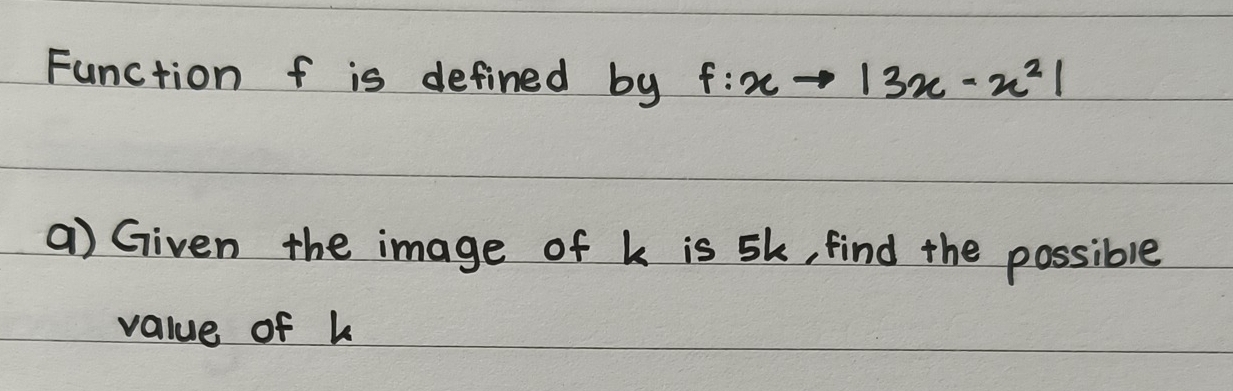 Function f is defined by f:x → |3x - x²|
a) Given the image of k is 5k, find the possible
value of k